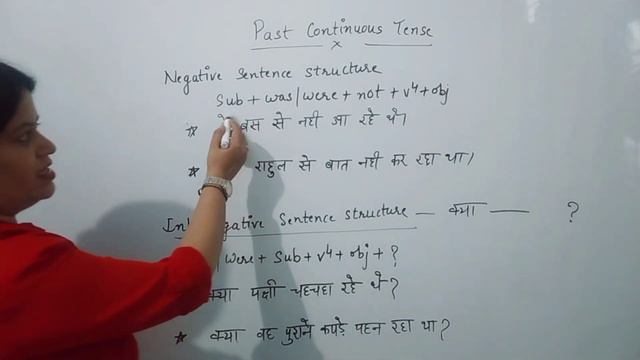 Past Continuous Tense
x
Negative Sentence Structure
Sub + was/were + not + v⁴ + obj
* बस से नही जा रहे थे।
* राहुल से बात नही कर रहा था।
Sentence Structure — क्या — ?
were + Sub + v⁴ + obj + ?
क्या पक्षी चहचहा रहे थे?
* क्या वह पुराने कपड़े पहन रहा था?